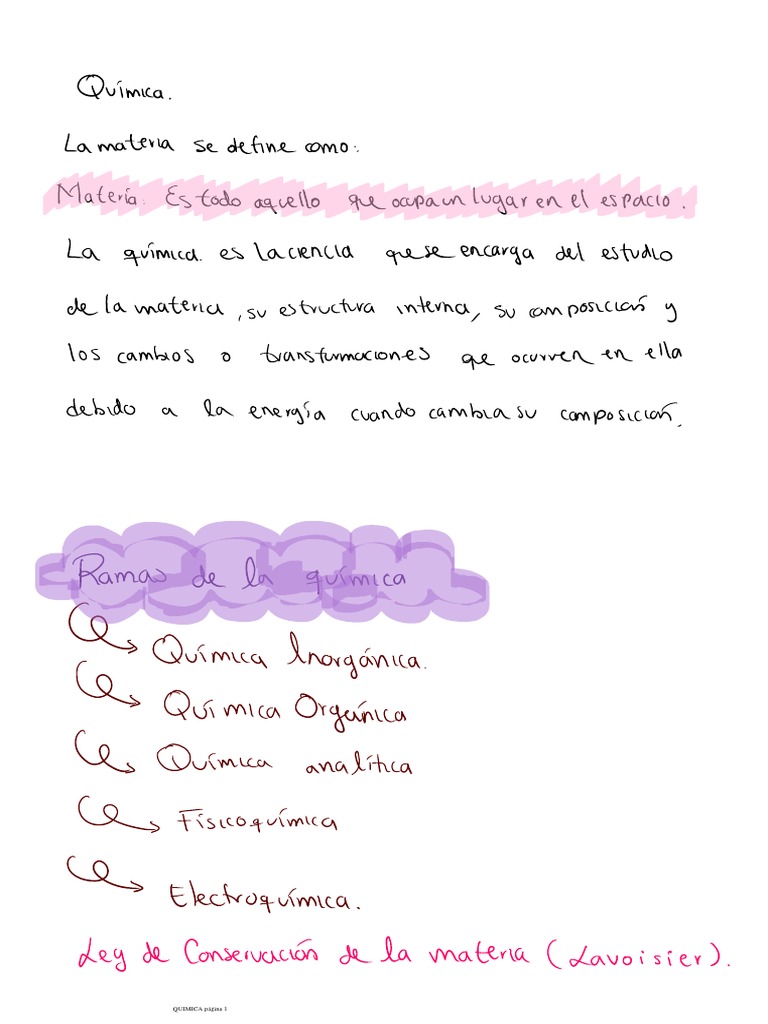 Química.
La materia se define como:
Materia: Es todo aquello que ocupa un lugar en el espacio.
La química es la ciencia que se encarga del estudio
de la materia, su estructura interna, su composición y
los cambios o transformaciones que ocurren en ella
debido a la energía cuando cambia su composición.
Ramas de la química
Química Inorgánica.
Química Orgánica
Química analítica
Fisicoquímica
Electroquímica.
Ley de Conservación de la materia (Lavoisier).
QUIMICA página 1